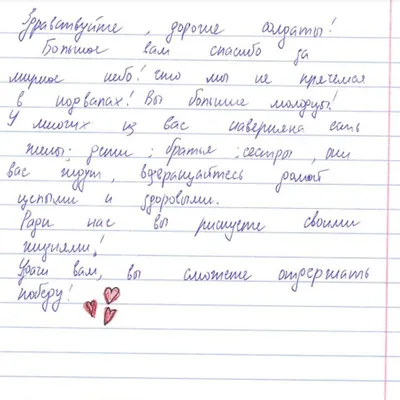 Здравствуйте, дорогие солдаты!
Большое вам спасибо за
мирное небо! что мы не прячемся
в подвалах! Вы большие молодцы!
У многих из вас наверняка есть
жены; дети; братья; сестры, они
вас ждут, возвращайтесь домой
целыми и здоровыми.
Ради нас вы рискуете своими
жизнями!
Удачи вам, вы сможете отдержать
победу!